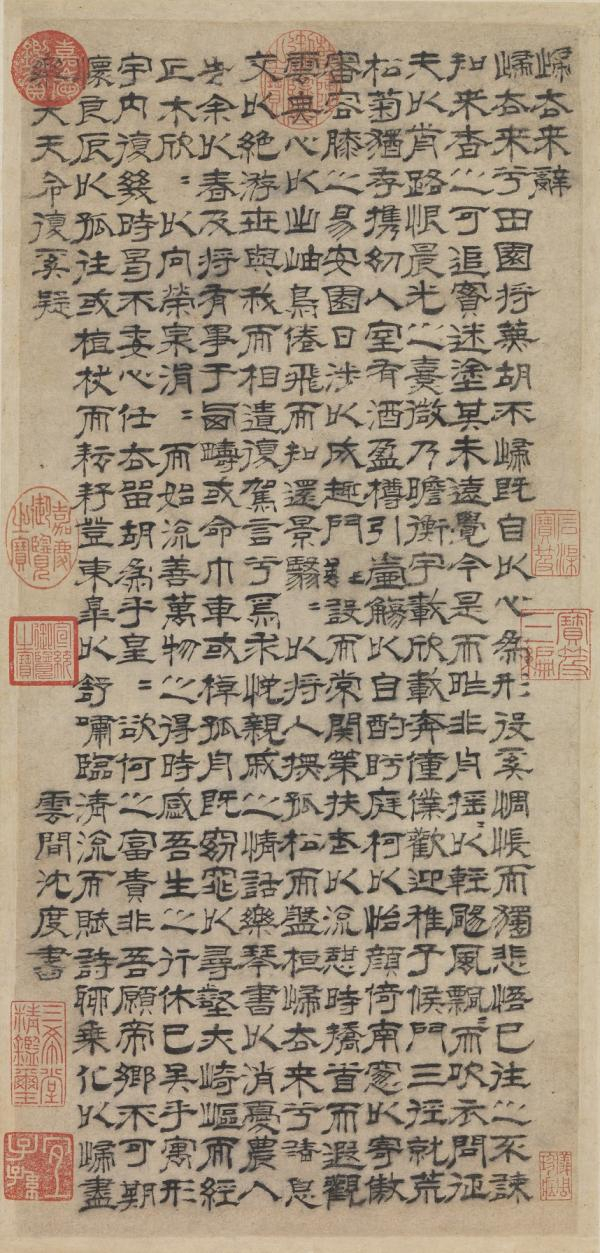 歸去来辭
歸去来兮田園将蕪胡不歸既自以心為形役奚惆悵而獨悲悟已往之不諫
知来者之可追實迷塗其未遠覺今是而昨非舟揺〻以輕颺風飄〻而吹衣問征
夫以前路恨晨光之熹微乃瞻衡宇載欣載奔僮僕歡迎稚子候門三徑就荒
松菊猶存携幼入室有酒盈樽引壺觴以自酌眄庭柯以怡顔倚南窓以寄傲
審容膝之易安園日涉以成趣門設而常關策扶老以流憩時矯首而遐觀
雲無心以出岫鳥倦飛而知還景翳〻以将入撫孤松而盤桓歸去来兮請息
交以絶游世與我而相遺復駕言兮焉求悅親戚之情話樂琴書以消憂農人
告余以春及将有事于西疇或命巾車或棹孤舟既窈窕以尋壑亦崎嶇而經
丘木欣〻以向榮泉涓〻而始流善萬物之得時感吾生之行休已矣乎寓形
宇内復幾時曷不委心任去留胡為乎皇〻欲何之富貴非吾願帝鄉不可期
懷良辰以孤往或植杖而耘耔登東皋以舒嘯臨清流而賦詩聊乗化以歸盡
樂夫天命復奚疑
雲間沈度書
石渠寶笈
寶笈三編
嘉慶鑑賞
嘉慶御覽之寶
宣統御覽之寶
三希堂精鑑璽
宜子孫